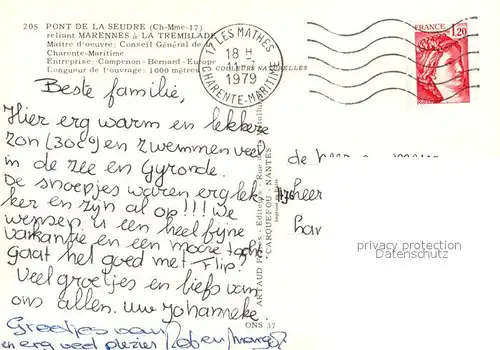 205 PONT DE LA SEUDRE (Ch-Mme-17)
reliant MARENNES à LA TREMBLADE
Maître d'oeuvre: Conseil Général de la
Charente-Maritime
Entreprise: Campenon-Bernard-Europe
Longueur de l'ouvrage: 1000 mètres
COULEURS NATURELLES
17 LES MATHES
18 H
11-
1979
CHARENTE-MARITIME
FRANCE
1,20
Beste familie,
Hier erg warm en lekkere
zon (30°C) en zwemmen veel
in de zee en Gyronde.
De snoepjes waren erg lek-
ker en zijn al op!!! We
wensen u een heel fijne
vakantie en een mooie tocht
gaat het goed met Flip?
Veel groetjes en liefs van
ons allen. uw Johanneke.
Groetjes van
en erg veel plezier
ARTAUD Editeurs - Rue de
CARQUEFOU - NANTES
ONS 37
de heer
heer
har
privacy protection
Datenschutz